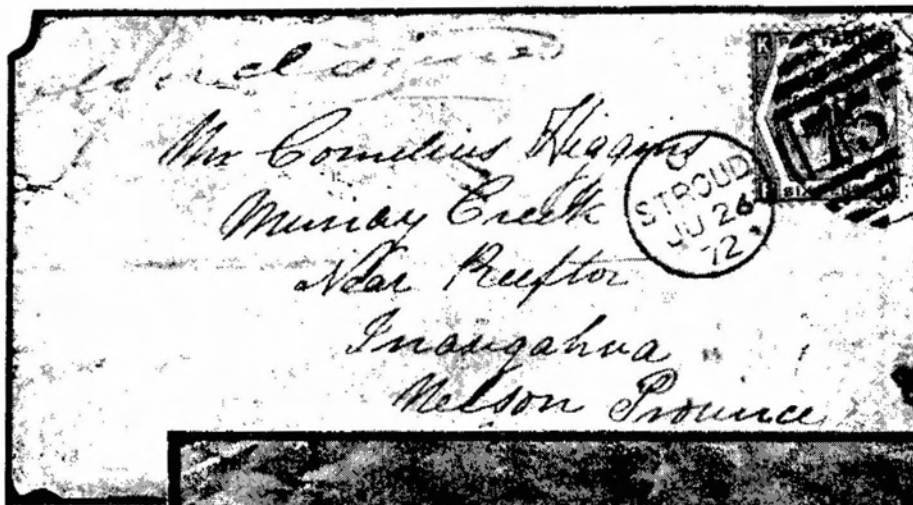 Unclaimed
Mr Cornelius Higgins
Murray Creek
Near Reefton
Inangahua
Nelson Province
STROUD
JU 26
72
75
K
SIX